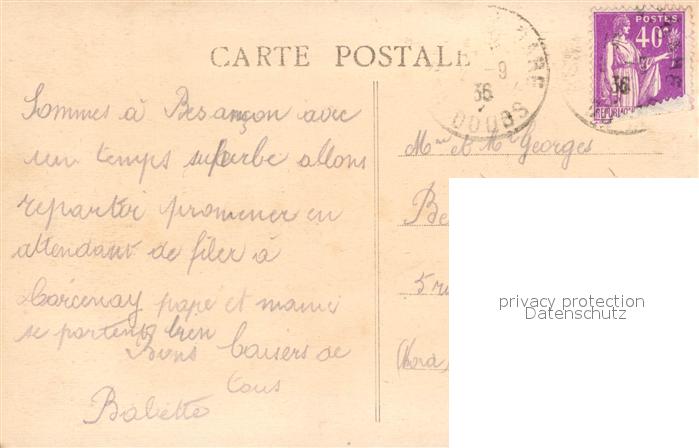 CARTE POSTALE
POSTES
40c
GARE
-9
36
DOUBS
36
Sommes à Besançon avec
un temps superbe allons
repartir promener en
attendant de filer à
papé et mami
se portent bien
Bons baisers de
tous
Babette
Mme et Mr Georges
Be
5 ru
(Nord)
privacy protection
Datenschutz